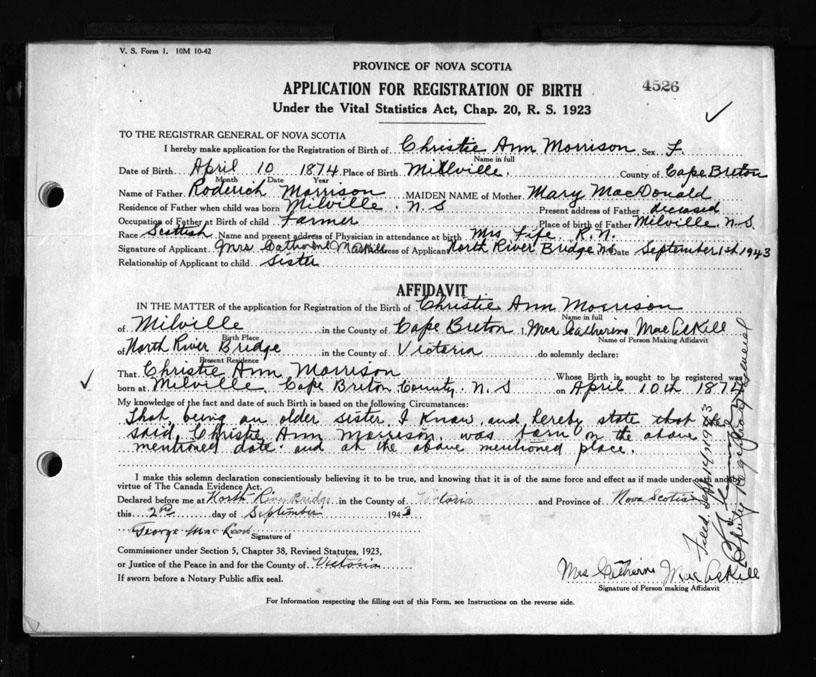 V. S. Form 1. 10M 10-42
PROVINCE OF NOVA SCOTIA
APPLICATION FOR REGISTRATION OF BIRTH
4526
Under the Vital Statistics Act, Chap. 20, R. S. 1923
TO THE REGISTRAR GENERAL OF NOVA SCOTIA
I hereby make application for the Registration of Birth of Christie Ann Morrison Sex F.
Name in full
Date of Birth April 10 1874 Place of Birth Millville. County of Cape Breton
Month Date Year
Name of Father Roderick Morrison MAIDEN NAME of Mother Mary MacDonald
Residence of Father when child was born Milville. N.S Present address of Father deceased
Occupation of Father at Birth of child Farmer Place of birth of Father Milville N.S.
Race Scottish Name and present address of Physician in attendance at birth Mrs Fife R.N.
Signature of Applicant Mrs Catherine MacAskill Address of Applicant North River Bridge N.S Date September 1st 1943
Relationship of Applicant to child Sister
AFFIDAVIT
IN THE MATTER of the application for Registration of the Birth of Christie Ann Morrison
Name in full
of Milville in the County of Cape Breton I, Mrs Catherine MacAskill
Birth Place Name of Person Making Affidavit
of North River Bridge in the County of Victoria do solemnly declare:
Present Residence
That Christie Ann Morrison Whose Birth is sought to be registered was
born at Milville, Cape Breton County. N.S on April 10th 1874
My knowledge of the fact and date of such Birth is based on the following Circumstances:
That being an older sister I know and hereby state that the
said, Christie Ann Morrison, was born on the above
mentioned date. and at the above mentioned place.
I make this solemn declaration conscientiously believing it to be true, and knowing that it is of the same force and effect as if made under oath and
virtue of The Canada Evidence Act.
Declared before me at North River Bridge in the County of Victoria and Province of Nova Scotia
this 2nd day of September 1943
George MacLeod
Signature of
Commissioner under Section 5, Chapter 38, Revised Statutes, 1923,
or Justice of the Peace in and for the County of Victoria
If sworn before a Notary Public affix seal.
Mrs Catherine MacAskill
Signature of Person making Affidavit
For Information respecting the filling out of this Form, see Instructions on the reverse side.
Sept 14/1943
Deputy Registrar General